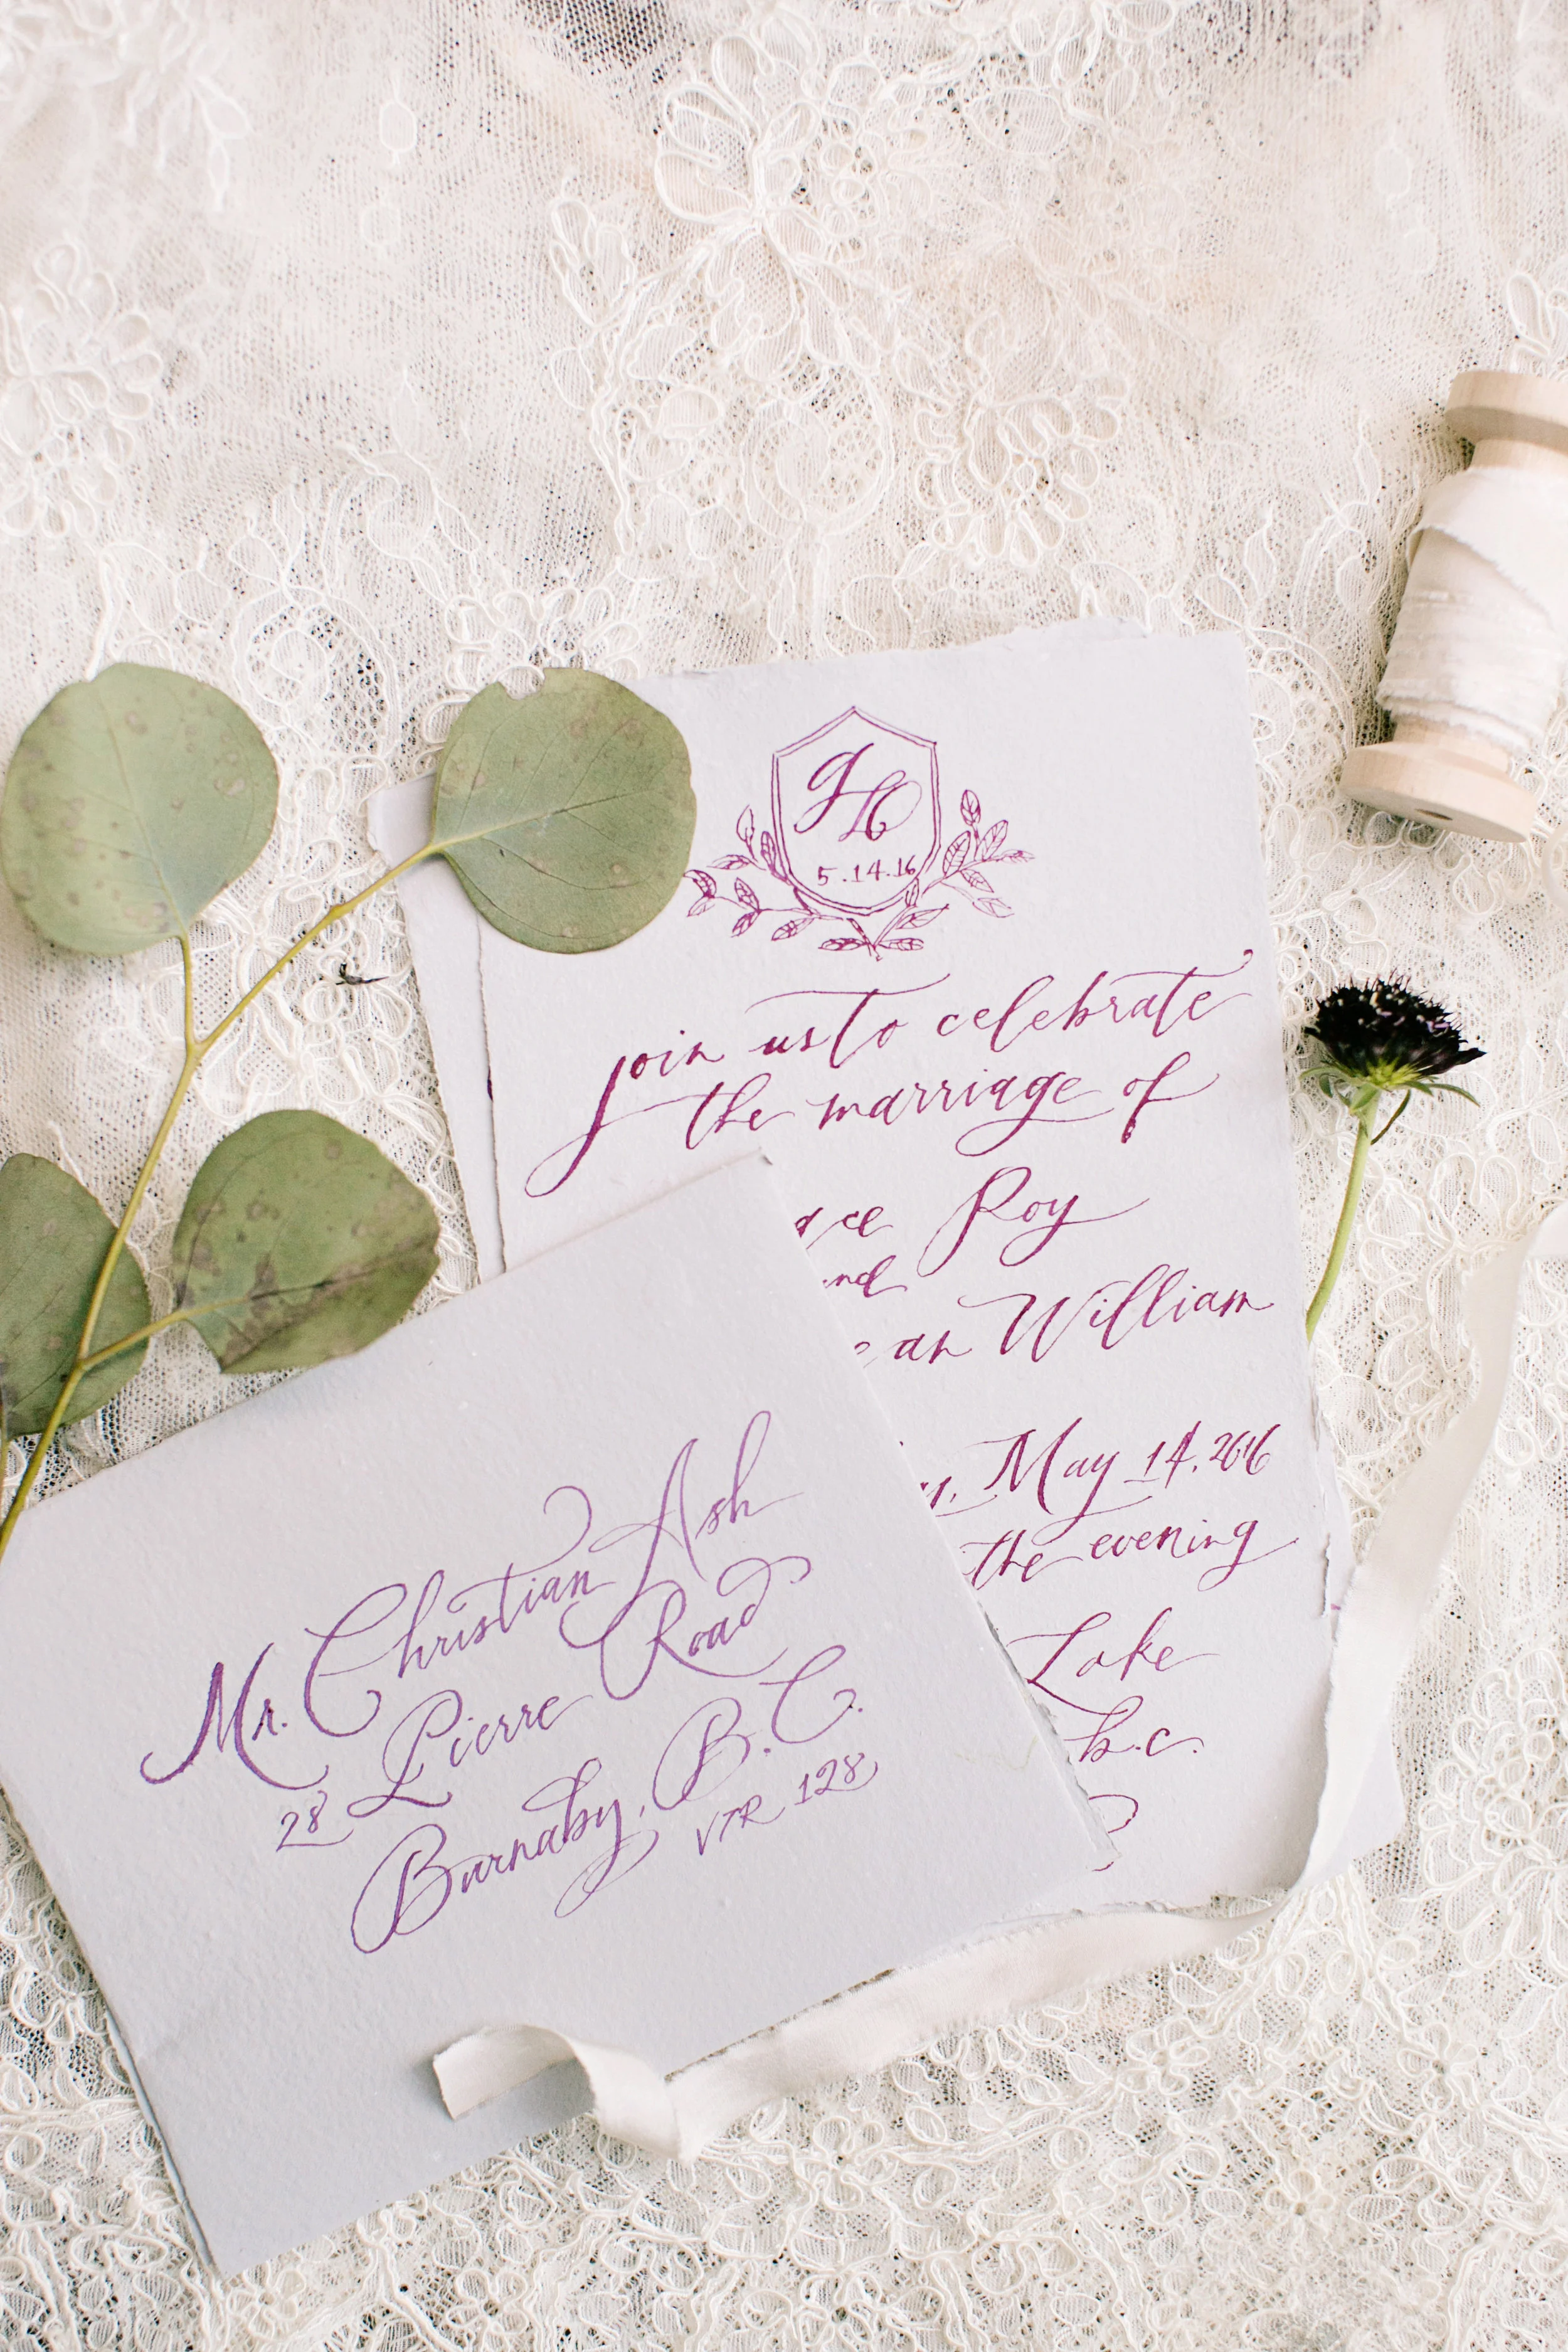 5.14.16
join us to celebrate
the marriage of
Roy
William
May 14, 2016
the evening
Lake
b.c.
Mr. Christian Ash
28 Pierre Road
Burnaby, B.C.
V7R 128